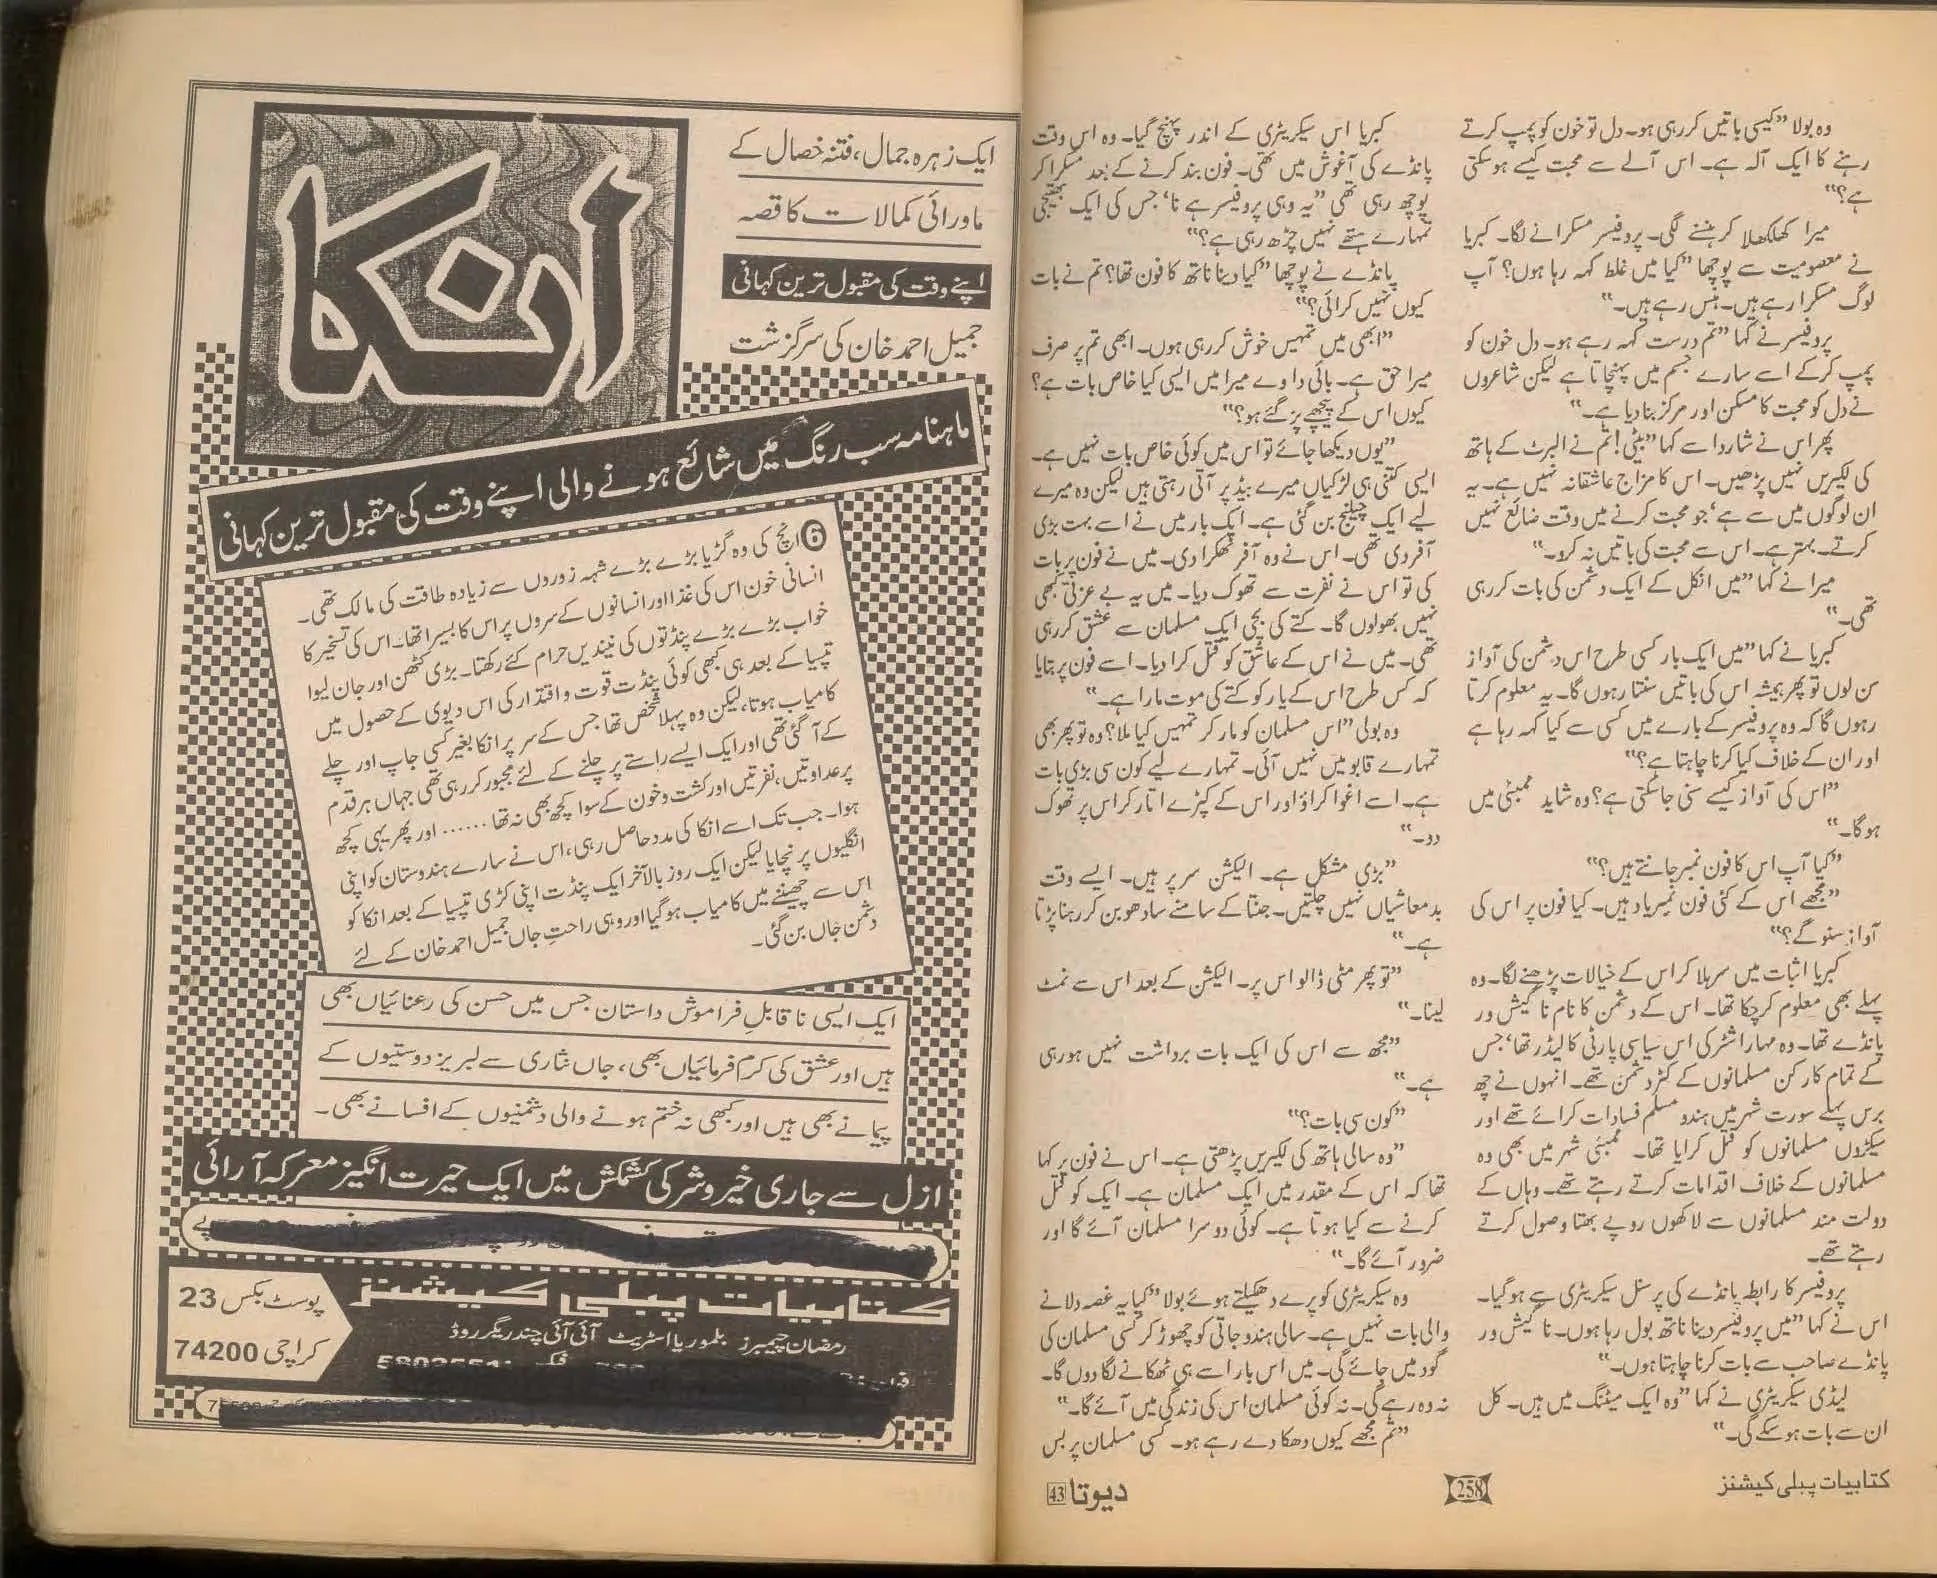 وہ بولا ”کیسی باتیں کر رہی ہو۔ دل تو خون کو پمپ کرتے
رہنے کا ایک آلہ ہے۔ اس آلے سے محبت کیسے ہو سکتی
ہے؟“
میرا کھلکھلا کر ہنسنے لگی۔ پروفیسر مسکرانے لگا۔ کبریا
نے معصومیت سے پوچھا ”کیا میں غلط کہہ رہا ہوں؟ آپ
لوگ مسکرا رہے ہیں۔ ہنس رہے ہیں۔“
پروفیسر نے کہا ”تم درست کہہ رہے ہو۔ دل خون کو
پمپ کرکے اسے سارے جسم میں پہنچاتا ہے لیکن شاعروں
نے دل کو محبت کا مسکن اور مرکز بنا دیا ہے۔“
پھر اس نے شاردا سے کہا ”بیٹی! تم نے البرٹ کے ہاتھ
کی لکیریں نہیں پڑھیں۔ اس کا مزاج عاشقانہ نہیں ہے۔ یہ
ان لوگوں میں سے ہے‘ جو محبت کرنے میں وقت ضائع نہیں
کرتے۔ بہتر ہے۔ اس سے محبت کی باتیں نہ کرو۔“
میرا نے کہا ”میں انکل کے ایک دشمن کی بات کر رہی
تھی۔“
کبریا نے کہا ”میں ایک بار کسی طرح اس دشمن کی آواز
سن لوں تو پھر ہمیشہ اس کی باتیں سنتا رہوں گا۔ یہ معلوم کرتا
رہوں گا کہ وہ پروفیسر کے بارے میں کسی سے کیا کہہ رہا ہے
اور ان کے خلاف کیا کرنا چاہتا ہے؟“
”اس کی آواز کیسے سنی جا سکتی ہے؟ وہ شاید ممبئی میں
ہوگا۔“
”کیا آپ اس کا فون نمبر جانتے ہیں؟“
”مجھے اس کے کئی فون نمبر یاد ہیں۔ کیا فون پر اس کی
آواز سنو گے؟“
کبریا اثبات میں سر ہلا کر اس کے خیالات پڑھنے لگا۔ وہ
پہلے بھی معلوم کر چکا تھا۔ اس کے دشمن کا نام ناگیش ور
پانڈے تھا۔ وہ مہاراشٹر کی اس سیاسی پارٹی کا لیڈر تھا‘ جس
کے تمام کارکن مسلمانوں کے کٹر دشمن تھے۔ انہوں نے چھ
برس پہلے سورت شہر میں ہندو مسلم فسادات کرائے تھے اور
سیکڑوں مسلمانوں کو قتل کرایا تھا۔ ممبئی شہر میں بھی وہ
مسلمانوں کے خلاف اقدامات کرتے رہتے تھے۔ وہاں کے
دولت مند مسلمانوں سے لاکھوں روپے بھتا وصول کرتے
رہتے تھے۔
پروفیسر کا رابطہ پانڈے کی پرسنل سیکریٹری سے ہوگیا۔
اس نے کہا ”میں پروفیسر دینا ناتھ بول رہا ہوں۔ ناگیش ور
پانڈے صاحب سے بات کرنا چاہتا ہوں۔“
لیڈی سیکریٹری نے کہا ”وہ ایک میٹنگ میں ہیں۔ کل
ان سے بات ہو سکے گی۔“
کبریا اس سیکریٹری کے اندر پہنچ گیا۔ وہ اس وقت
پانڈے کی آغوش میں تھی۔ فون بند کرنے کے بعد مسکرا کر
پوچھ رہی تھی ”یہ وہی پروفیسر ہے نا‘ جس کی ایک بھتیجی
تمہارے ہتھے نہیں چڑھ رہی ہے؟“
پانڈے نے پوچھا ”کیا دینا ناتھ کا فون تھا؟ تم نے بات
کیوں نہیں کرائی؟“
”ابھی میں تمہیں خوش کر رہی ہوں۔ ابھی تم پر صرف
میرا حق ہے۔ بائی دا وے میرا میں ایسی کیا خاص بات ہے؟
کیوں اس کے پیچھے پڑ گئے ہو؟“
”یوں دیکھا جائے تو اس میں کوئی خاص بات نہیں ہے۔
ایسی کتنی ہی لڑکیاں میرے بیڈ پر آتی رہتی ہیں لیکن وہ میرے
لیے ایک چیلنج بن گئی ہے۔ ایک بار میں نے اسے بہت بڑی
آفر دی تھی۔ اس نے وہ آفر ٹھکرا دی۔ میں نے فون پر بات
کی تو اس نے نفرت سے تھوک دیا۔ میں یہ بے عزتی کبھی
نہیں بھولوں گا۔ کتے کی بچی ایک مسلمان سے عشق کر رہی
تھی۔ میں نے اس کے عاشق کو قتل کرا دیا۔ اسے فون پر بتایا
کہ کس طرح اس کے یار کو کتے کی موت مارا ہے۔“
وہ بولی ”اس مسلمان کو مار کر تمہیں کیا ملا؟ وہ تو پھر بھی
تمہارے قابو میں نہیں آئی۔ تمہارے لیے کون سی بڑی بات
ہے۔ اسے اغوا کراؤ اور اس کے کپڑے اتار کر اس پر تھوک
دو۔“
”بڑی مشکل ہے۔ الیکشن سر پر ہیں۔ ایسے وقت
بدمعاشیاں نہیں چلتیں۔ جنتا کے سامنے سادھو بن کر رہنا پڑتا
ہے۔“
”تو پھر مٹی ڈالو اس پر۔ الیکشن کے بعد اس سے نمٹ
لینا۔“
”مجھ سے اس کی ایک بات برداشت نہیں ہو رہی
ہے۔“
”کون سی بات؟“
”وہ سالی ہاتھ کی لکیریں پڑھتی ہے۔ اس نے فون پر کہا
تھا کہ اس کے مقدر میں ایک مسلمان ہے۔ ایک کو قتل
کرنے سے کیا ہوتا ہے۔ کوئی دوسرا مسلمان آئے گا اور
ضرور آئے گا۔“
وہ سیکریٹری کو پرے دھکیلتے ہوئے بولا ”کیا یہ غصہ دلانے
والی بات نہیں ہے۔ سالی ہندو جاتی کو چھوڑ کر کسی مسلمان کی
گود میں جائے گی۔ میں اس بار اسے ہی ٹھکانے لگا دوں گا۔
نہ وہ رہے گی۔ نہ کوئی مسلمان اس کی زندگی میں آئے گا۔“
”تم مجھے کیوں دھکا دے رہے ہو۔ کسی مسلمان پر بس
کتابیات پبلی کیشنز
258
دیوتا 43
ایک زہرہ جمال، فتنہ خصال کے
ماورائی کمالات کا قصہ
اپنے وقت کی مقبول ترین کہانی
جمیل احمد خان کی سرگزشت
انکا
ماہنامہ سب رنگ میں شائع ہونے والی اپنے وقت کی مقبول ترین کہانی
6 انچ کی وہ گڑیا بڑے بڑے شہہ زوروں سے زیادہ طاقت کی مالک تھی۔
انسانی خون اس کی غذا اور انسانوں کے سروں پر اس کا بسیرا تھا۔ اس کی تسخیر کا
خواب بڑے بڑے پنڈتوں کی نیندیں حرام کئے رکھتا۔ بڑی کٹھن اور جان لیوا
تپسیا کے بعد ہی کبھی کوئی پنڈت قوت و اقتدار کی اس دیوی کے حصول میں
کامیاب ہوتا، لیکن وہ پہلا شخص تھا جس کے سر پر انکا بغیر کسی جاپ اور چلے
کے آ گئی تھی اور ایک ایسے راستے پر چلنے کے لئے مجبور کر رہی تھی جہاں ہر قدم
پر عداوتیں، نفرتیں اور کشت و خون کے سوا کچھ بھی نہ تھا ...... اور پھر یہی کچھ
ہوا۔ جب تک اسے انکا کی مدد حاصل رہی، اس نے سارے ہندوستان کو اپنی
انگلیوں پر نچایا لیکن ایک روز بالآخر ایک پنڈت اپنی کڑی تپسیا کے بعد انکا کو
اس سے چھیننے میں کامیاب ہو گیا اور وہی راحتِ جاں جمیل احمد خان کے لئے
دشمن جاں بن گئی۔
ایک ایسی ناقابلِ فراموش داستان جس میں حسن کی رعنائیاں بھی
ہیں اور عشق کی کرم فرمائیاں بھی، جاں نثاری سے لبریز دوستیوں کے
پیمانے بھی ہیں اور کبھی نہ ختم ہونے والی دشمنیوں کے افسانے بھی۔
ازل سے جاری خیر و شر کی کشمکش میں ایک حیرت انگیز معرکہ آرائی
کتابیات پبلی کیشنز
رمضان چیمبرز بلموریا اسٹریٹ آئی آئی چندریگر روڈ
پوسٹ بکس 23
کراچی 74200